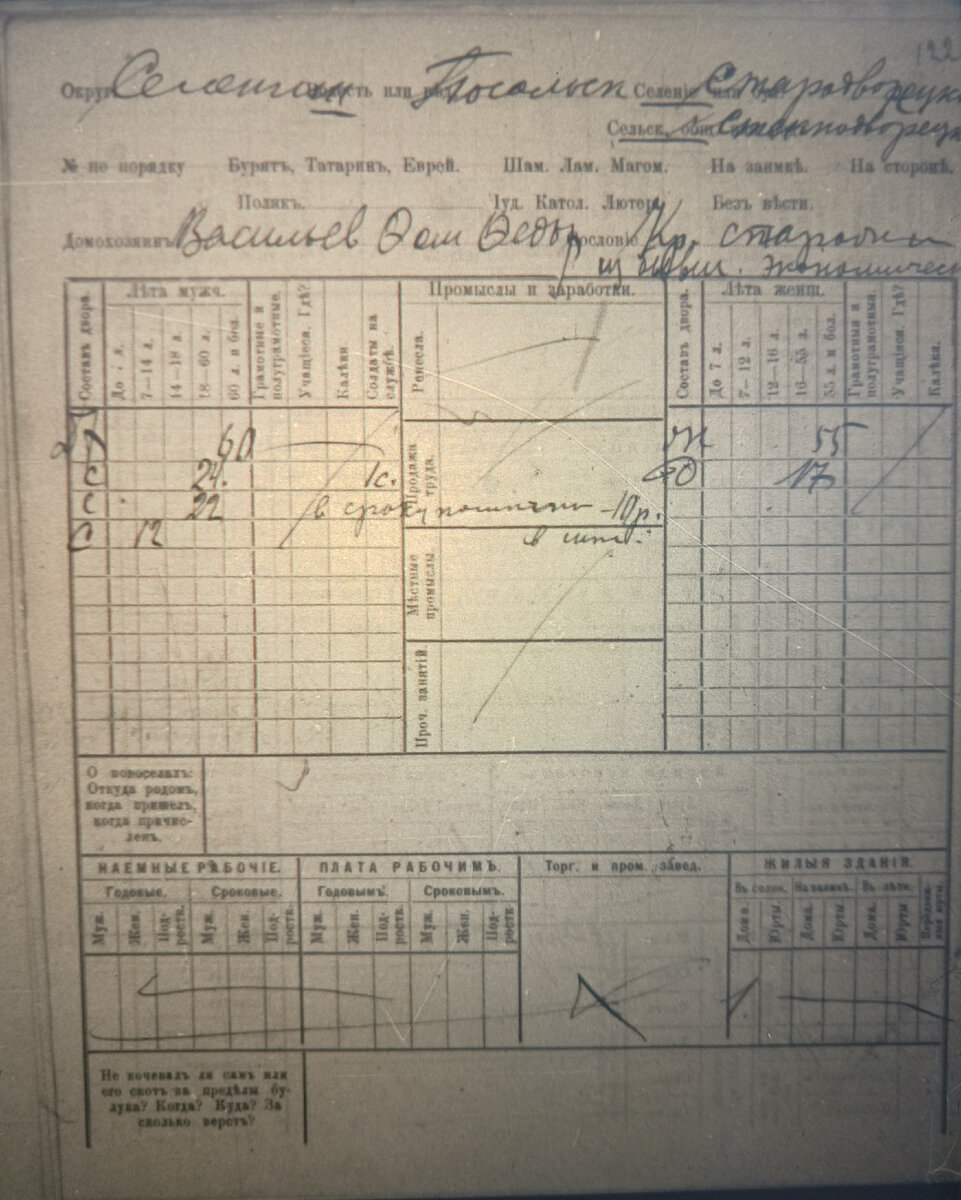 122
Округ Селенгин Волость или вѣд. Посольск Селеніе или бул. Стародворецк
Сельск. общ. Степнодворецк
№ по порядку Бурятъ, Татаринъ, Еврей. Шам. Лам. Магом. На заимкѣ. На сторонѣ.
Полякъ. Іуд. Катол. Лютер. Безъ вѣсти.
Домохозяинъ Васильев Фом Федор Сословіе Кр.
из бывш. экономическ
Составъ двора. Лѣта мужч. До 7 л. 7—14 л. 14—18 л. 18—60 л. 60 л. и бол. Грамотные и полуграмотные. Учащіеся. Гдѣ? Калѣки Солдаты на службѣ. Промыслы и заработки. Ремесла. Составъ двора. Лѣта женщ. До 7 л. 7—12 л. 12—16 л. 16—55 л. 55 л. и бол. Грамотныя и полуграмотныя. Учащіяся. Гдѣ? Калѣки.
60 Продажа труда. Ж 55
С 24. 1с. 17
С 22 в сроку 10 р.
С 12 в
Мѣстные промыслы
Проч. занятій.
О новоселахъ:
Откуда родомъ,
когда пришелъ,
когда причис-
ленъ.
НАЕМНЫЕ РАБОЧІЕ. ПЛАТА РАБОЧИМЪ. Торг. и пром. завед. ЖИЛЫЯ ЗДАНІЯ.
Годовые. Сроковые. Годовымъ. Сроковымъ. Въ селен. На заимкѣ. Въ лѣтн.
Муж. Жен. Под-ростк. Муж. Жен. Под-ростк. Муж. Жен. Под-ростк. Муж. Жен. Под-ростк. Дома. Юрты. Дома. Юрты. Дома. Юрты.
1
Не кочевалъ ли самъ или
его скотъ за предѣлы бу-
лука? Когда? Куда? За
сколько верстъ?